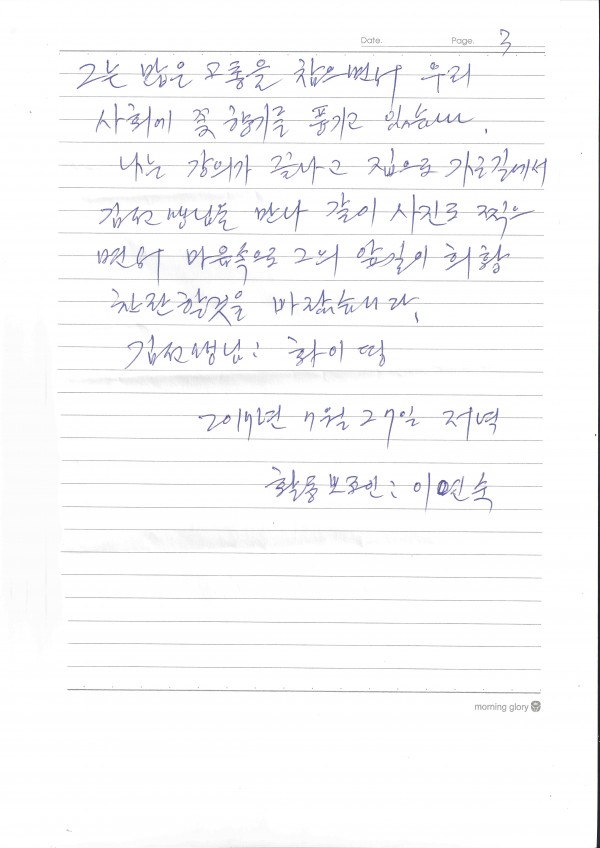 Date. Page. 3
그는 많은 고통을 참으면서 우리
사회에 꽃 향기를 풍기고 있는
나는 강의가 끝나고 집으로 가는길에서
김선생님을 만나 같이 사진도 찍으
면서 마음속으로 그의 앞길이 희황
찬란할것을 바랐습니다.
김선생님: 화이띵
2017년 7월 27일 저녁
활동보조인: 이연숙
morning glory